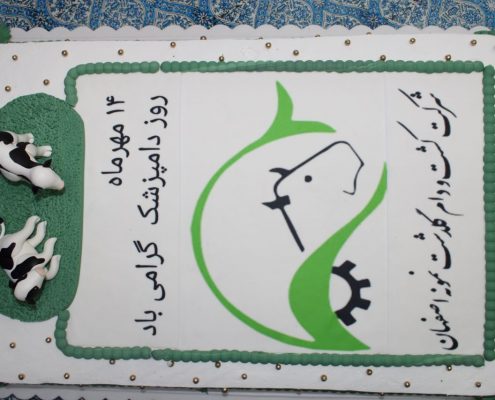 شرکت کشت و دام گلدشت نمونه اصفهان
۱۴ مهرماه
روز دامپزشک گرامی باد